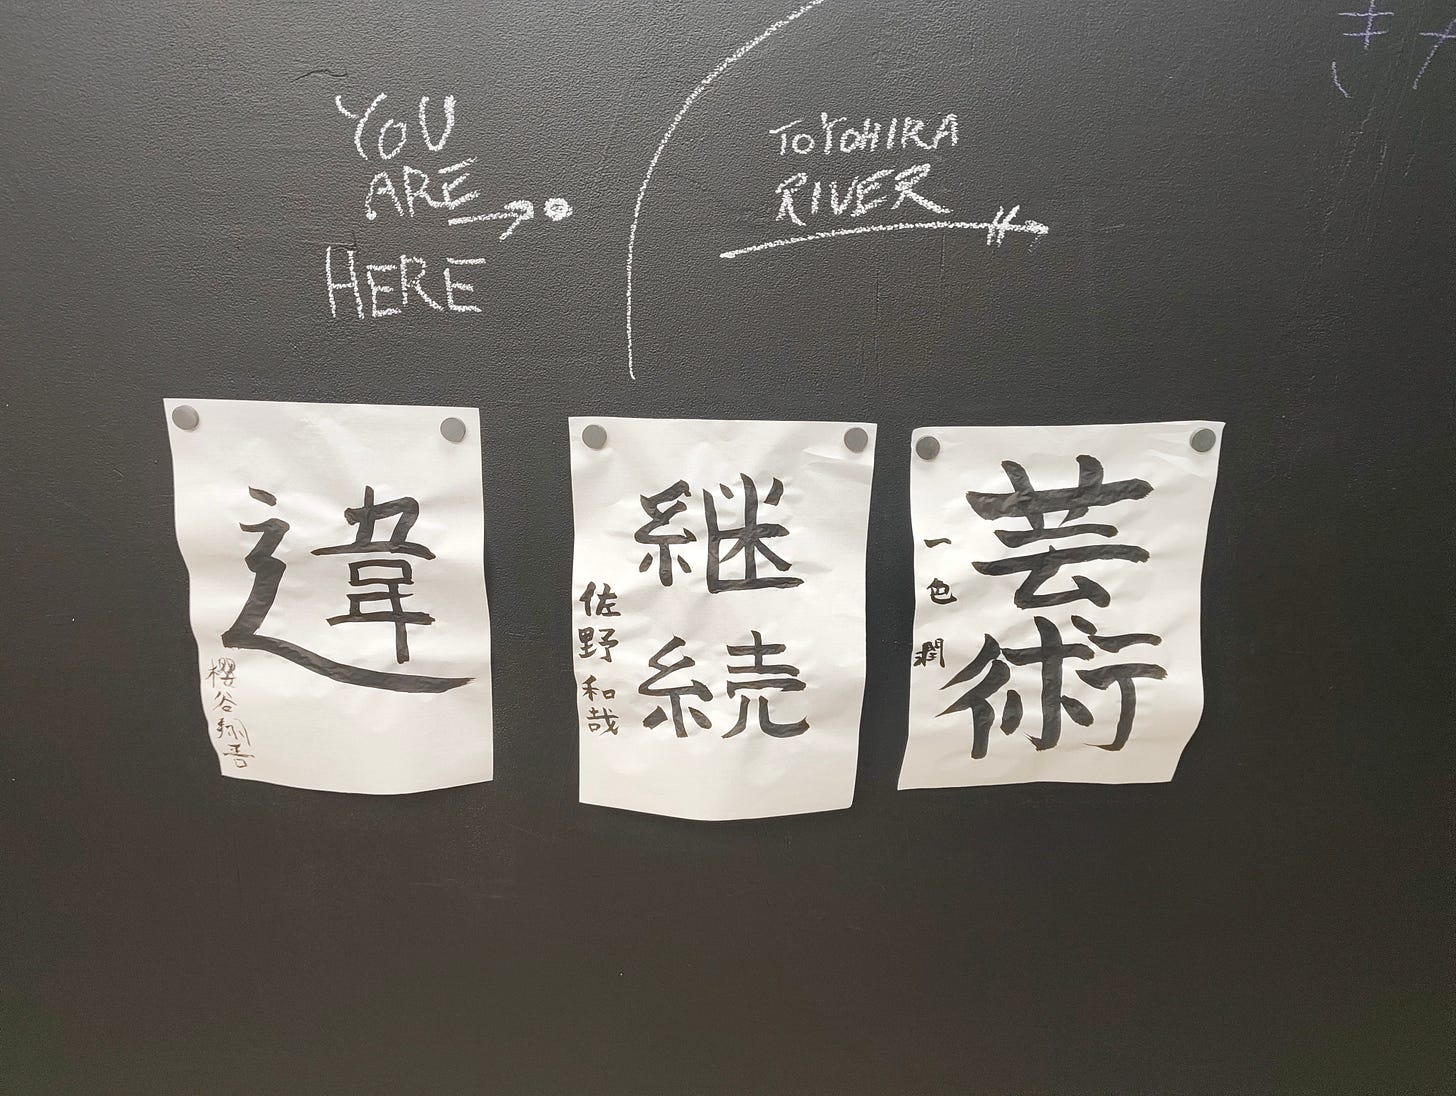 YOU
ARE
HERE
TOYOHIRA
RIVER
違
櫻谷翔吾
継続
佐野和哉
芸術
一色潤